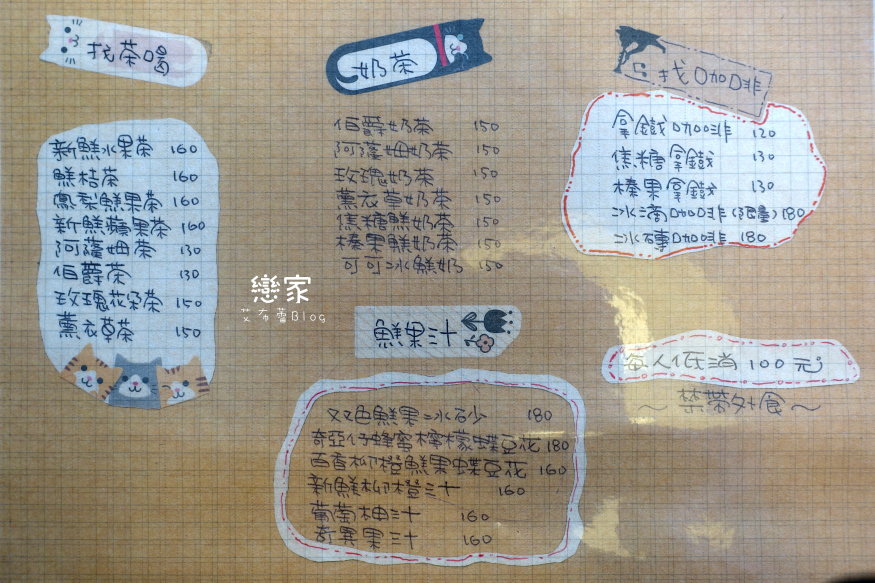 找茶喝
新鮮水果茶 160
鮮桔茶 160
鳳梨鮮果茶 160
新鮮蘋果茶 160
阿薩姆茶 130
伯爵茶 130
玫瑰花朵茶 150
薰衣草茶 150
奶茶
伯爵奶茶 150
阿薩姆奶茶 150
玫瑰奶茶 150
薰衣草奶茶 150
焦糖鮮奶茶 150
榛果鮮奶茶 150
可可冰鮮奶 150
找咖啡
拿鐵咖啡 120
焦糖拿鐵 130
榛果拿鐵 130
冰滴咖啡(限量) 180
冰磚咖啡 180
戀家
艾布蕾Blog
鮮果汁
双色鮮果冰砂 180
奇亞仔蜂蜜檸檬蝶豆花 180
百香柳橙鮮果蝶豆花 160
新鮮柳橙汁 160
葡萄柚汁 160
奇異果汁 160
每人低消100元
~禁帶外食~